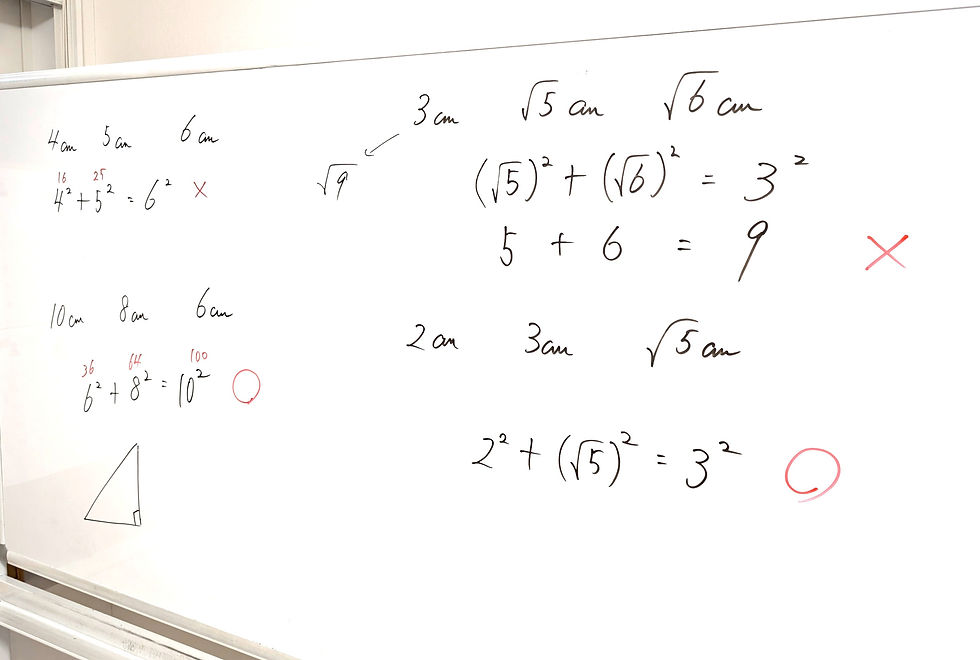 4cm 5cm 6cm
16 25
4² + 5² = 6² ×
10cm 8cm 6cm
36 64 100
6² + 8² = 10² ○
3cm √5cm √6cm
√9
(√5)² + (√6)² = 3²
5 + 6 = 9 ×
2cm 3cm √5cm
2² + (√5)² = 3² ○